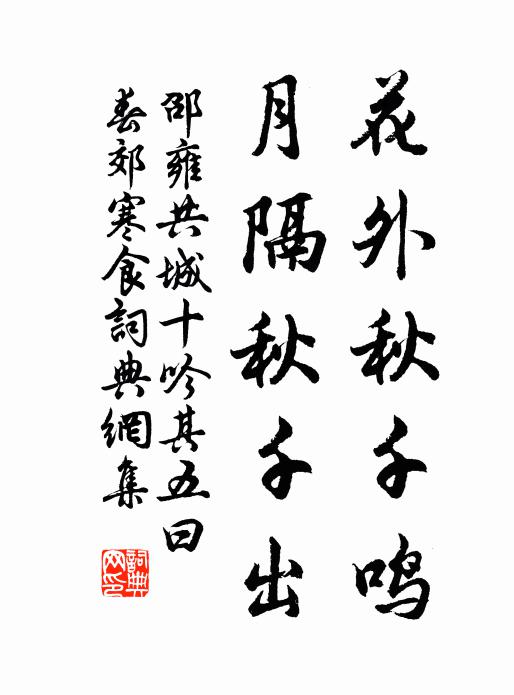 花外秋千鸣
月隔秋千出
邵雍共城十吟其五曰
春郊寒食詞典網集
詞典
网印